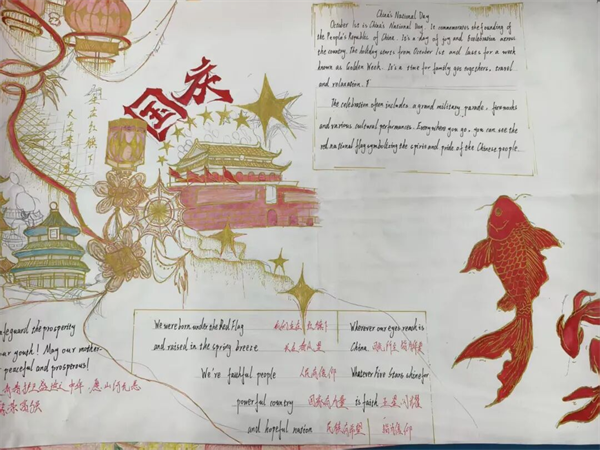 国庆
China's National Day
October 1st is China's National Day. It commemorates the founding of
the People's Republic of China. It's a day of joy and celebration across
the country. The holiday starts from October 1st and lasts for a week
known as Golden Week. It's a time for family get togethers, travel
and relaxation.
The celebration often includes a grand military parade, fireworks
and various cultural performances. Everywhere you go, you can see the
red national flag symbolizing the spirit and pride of the Chinese people.
We were born under the Red Flag
and raised in the spring breeze
We're faithful people 人民有信仰
powerful country 国家有力量
and hopeful nation 民族有希望
Wherever our eyes reach is
China
Whatever Five Stars shine for
is faith 五星闪耀
皆为信仰
safeguard the prosperity
our youth! May our mother
peaceful and prosperous!